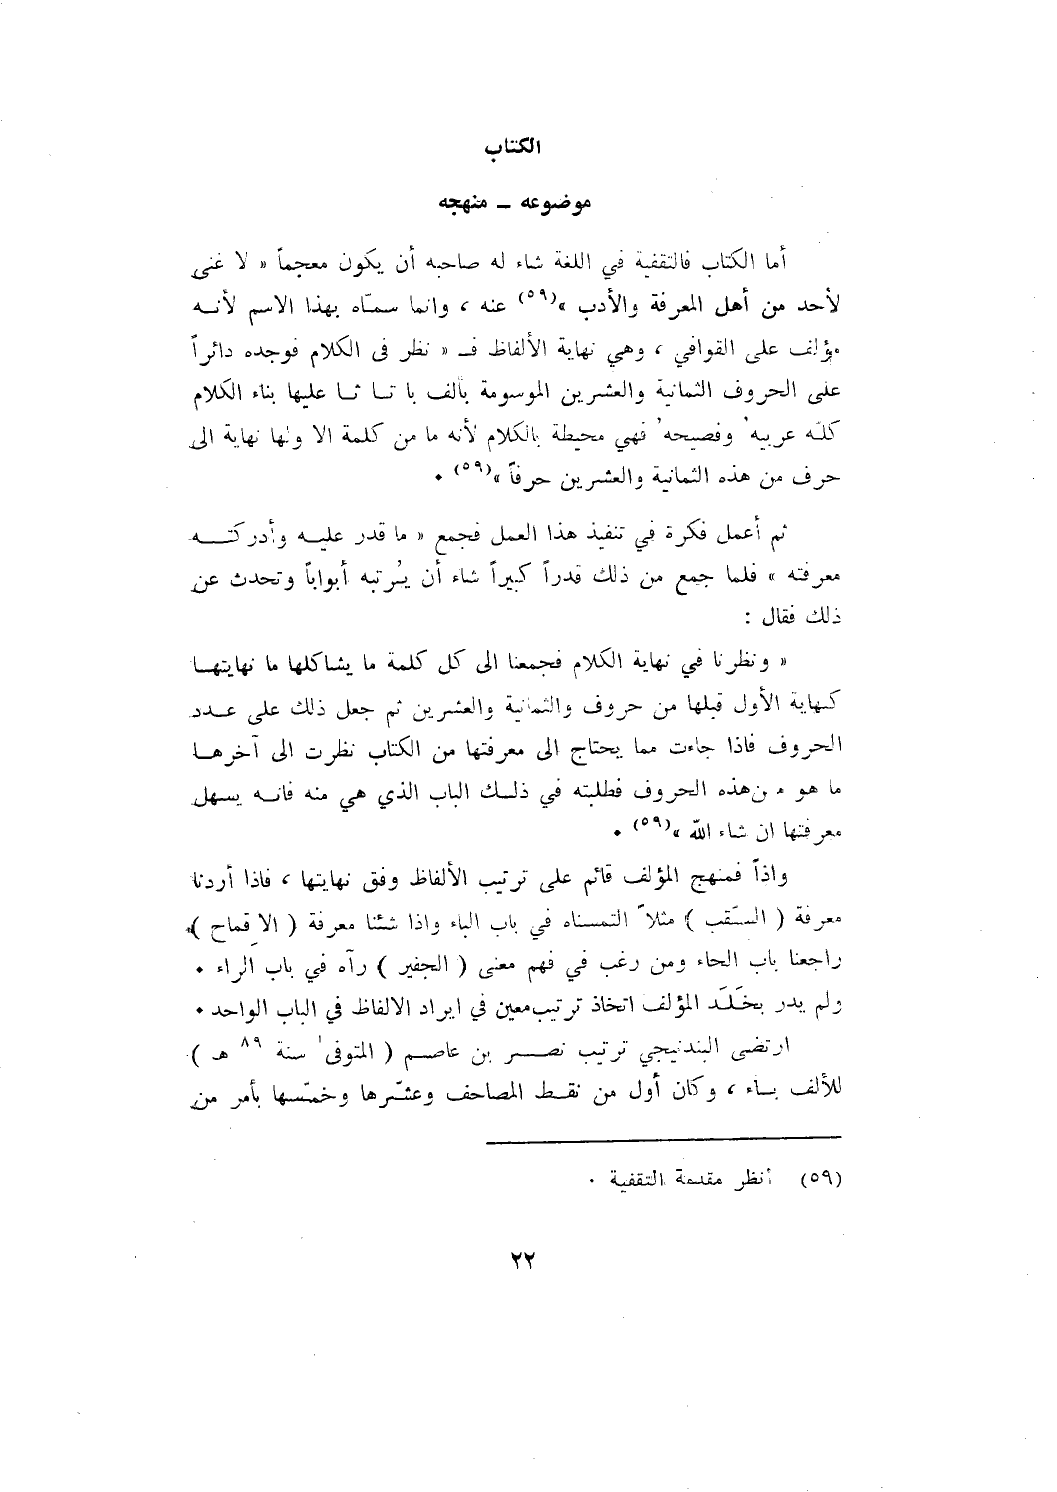 الكتاب
موضوعه ــ منهجه
أما الكتاب فالتقفية في اللغة شاء له صاحبه أن يكون معجماً « لا غنى
لأحد من أهل المعرفة والأدب »(٥٩) عنه ، وانما سمّاه بهذا الاسم لأنــه
مؤلف على القوافي ، وهي نهاية الألفاظ فــ « نظر فى الكلام فوجده دائراً
على الحروف الثمانية والعشرين الموسومة بألف با تــا ثــا عليها بناء الكلام
كلّه عربيه ُ وفصيحه ُ فهي محيطة بالكلام لأنه ما من كلمة الا ولها نهاية الى
حرف من هذه الثمانية والعشرين حرفاً »(٥٩) ٠
ثم أعمل فكرة في تنفيذ هذا العمل فجمع « ما قدر عليــه وأدركتــــه
معرفته » فلما جمع من ذلك قدراً كبيراً شاء أن يُرتبه أبواباً وتحدث عن
ذلك فقال :
« ونظرنا في نهاية الكلام فجمعنا الى كل كلمة ما يشاكلها ما نهايتهــا
كنهاية الأول قبلها من حروف والثمانية والعشرين ثم جعل ذلك على عــدد
الحروف فاذا جاءت مما يحتاج الى معرفتها من الكتاب نظرت الى آخرهــا
ما هو من هذه الحروف فطلبته في ذلــك الباب الذي هي منه فانــه يسهل
معرفتها ان شاء الله »(٥٩) ٠
واذاً فمنهج المؤلف قائم على ترتيب الألفاظ وفق نهايتها ، فاذا أردنا
معرفة ( السَّقب ) مثلاً التمسناه في باب الباء واذا شئنا معرفة ( الاقماح )،
راجعنا باب الحاء ومن رغب في فهم معنى ( الجفير ) رآه في باب الراء ٠
ولم يدر بخَلَد المؤلف اتخاذ ترتيب معين في ايراد الالفاظ في الباب الواحد ٠
ارتضى البندنيجي ترتيب نصــــر بن عاصم ( المتوفى ٰ سنة ٨٩ هـ )
للألف بــاء ، وكان أول من نقــط المصاحف وعشّرها وخمّسها بأمر من
(٥٩) أنظر مقدمة التقفية ٠
٢٢